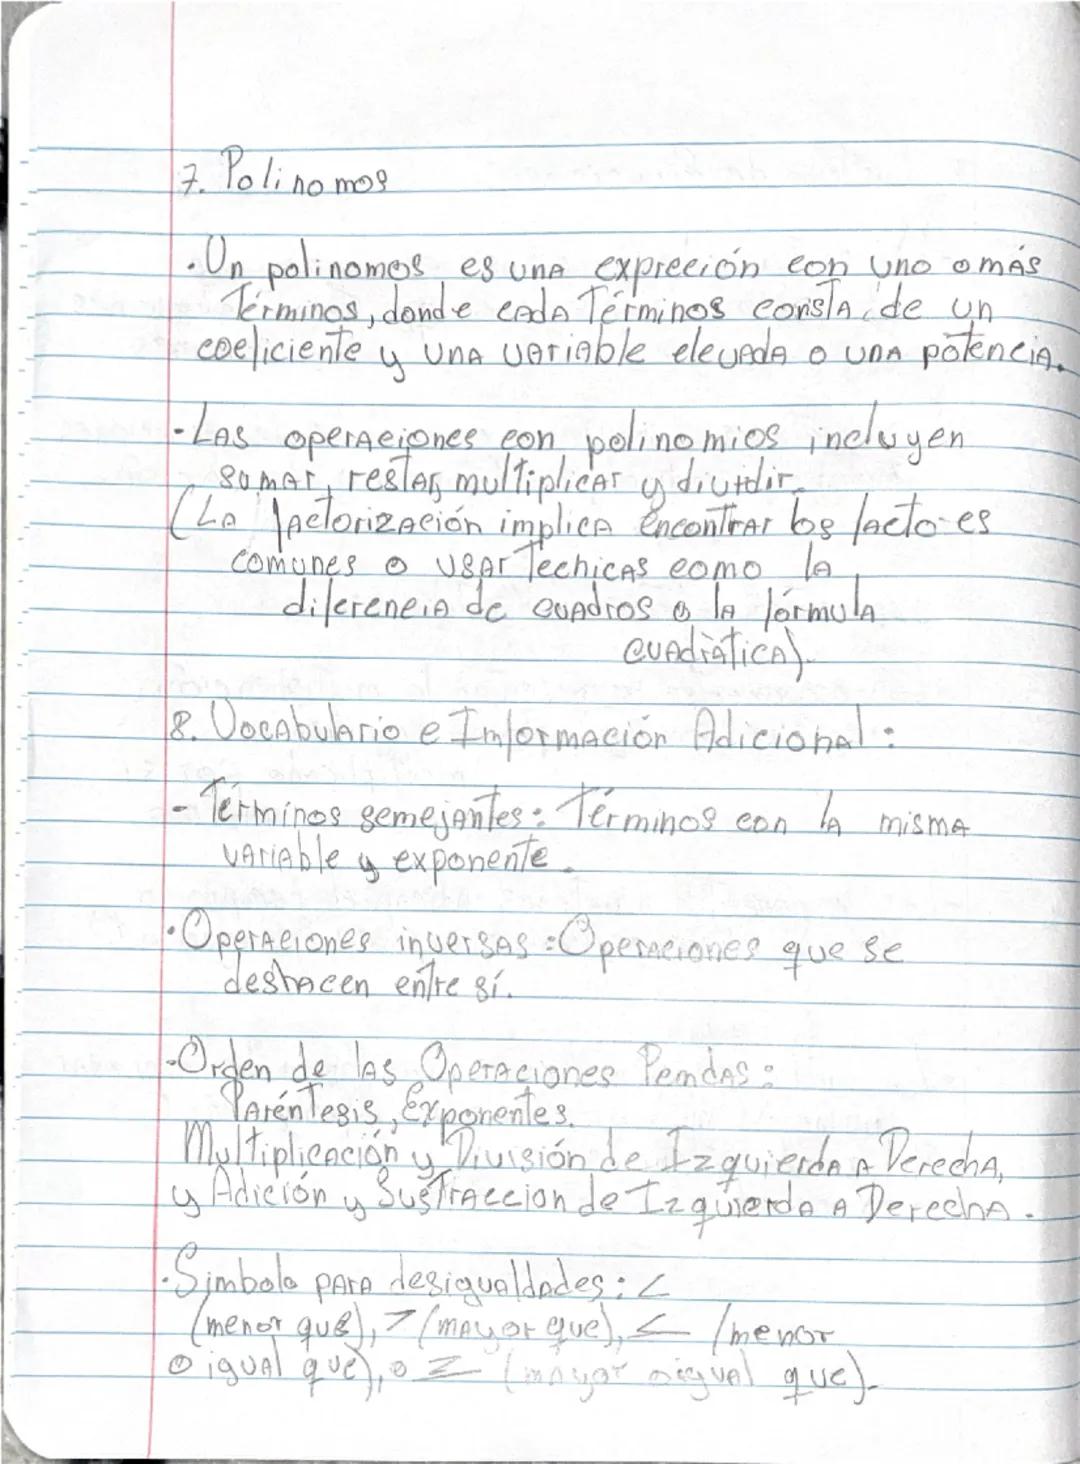 7. Polinomos
· Un polinomos es una expreción con uno o más
Términos, donde cada Términos consta de un
coeficiente y una variable elevada o una potencia.
- Las operaciones con polinomios incluyen
sumar, restar, multiplicar y dividir.
(La factorización implica encontrar los facto es
comunes o usar Technicas como la
diferencia de cuadros o la fórmula
cuadrática).
8. Vocabulario e Información Adicional:
- Términos semejantes: Términos con la misma
variable y exponente.
· Operaciones inversas: Operaciones que se
deshacen entre sí.
- Orden de las Operaciones Pemdas:
Paréntesis, Exponentes.
Multiplicación y División de Izquierda A Derecha,
y Adición y Sustraccion de Izquierda A Derecha.
· Símbolo para desigualdades: <
(menor que), > (mayor que), ≤ (menor
o igual que), o ≥ (mayor o igual que).